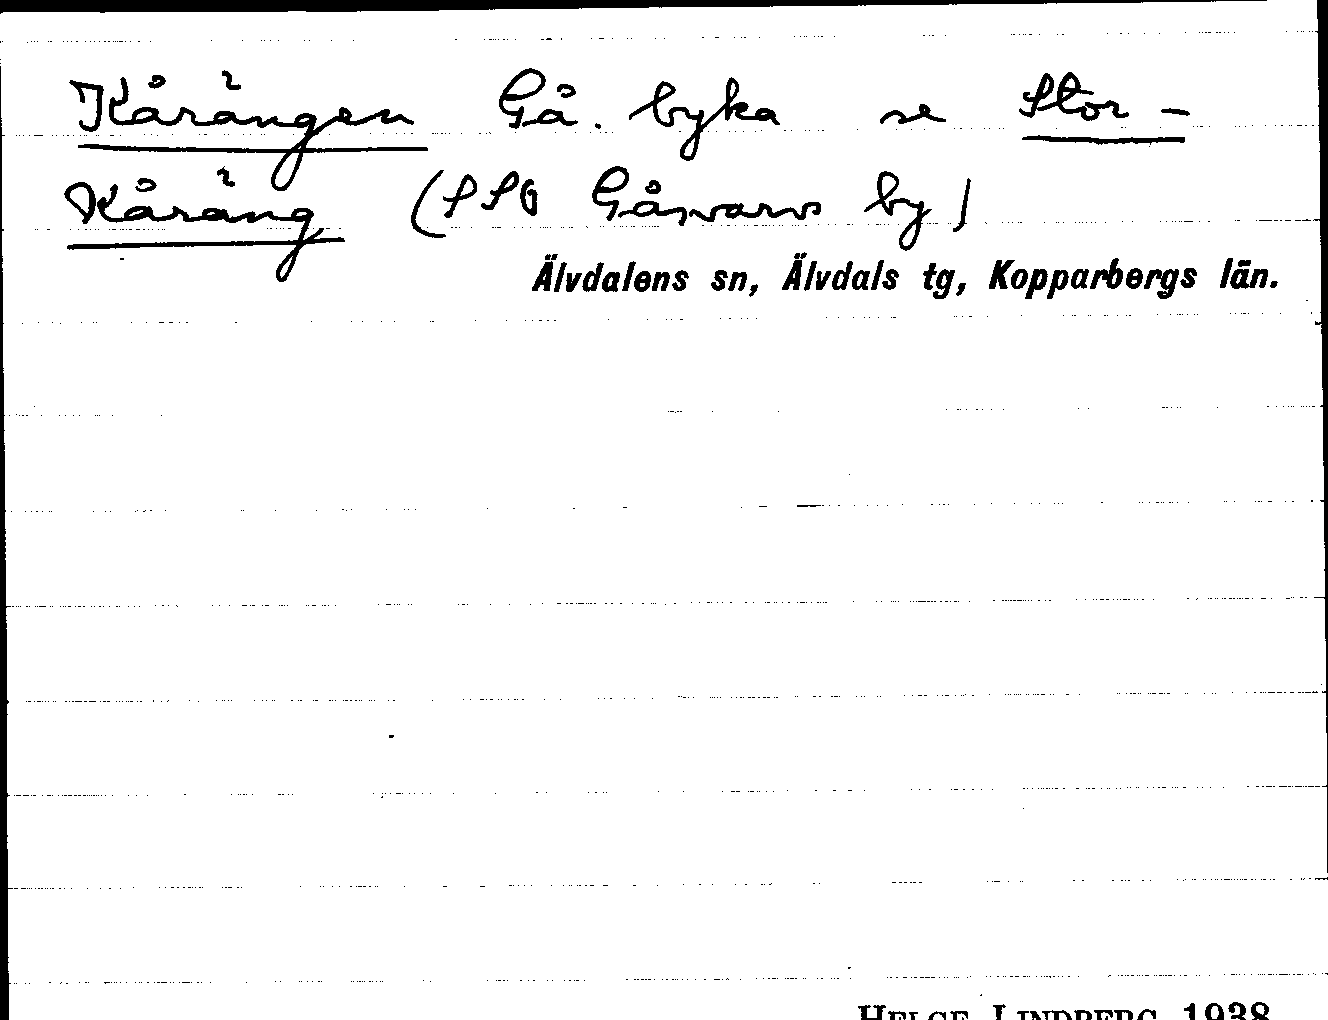 Kårängen Gå. byka se Stor-
Kåräng (SSO Gåsvarvs by)
Älvdalens sn, Älvdals tg, Kopparbergs län.
HELGE LINDBERG 1938